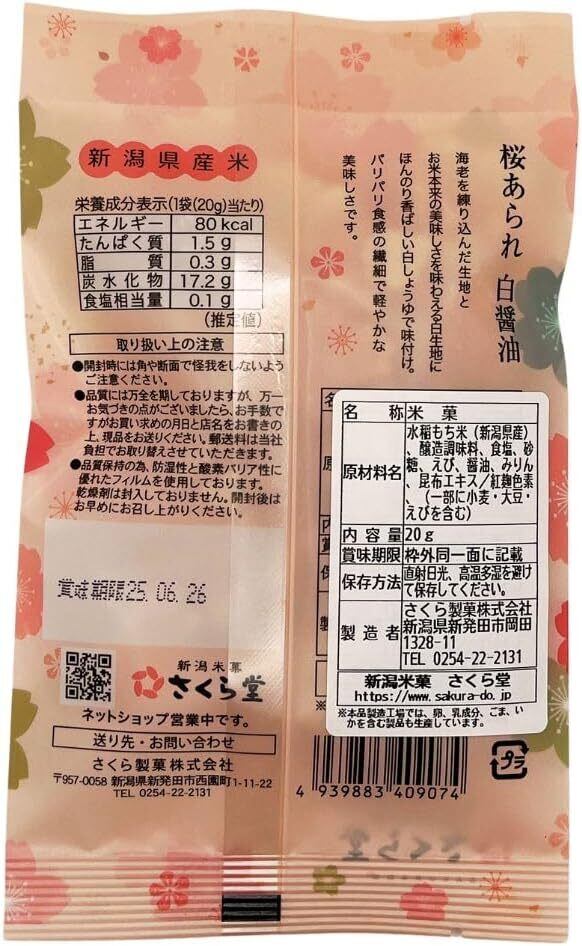 新潟県産米
栄養成分表示(1袋(20g)当たり)
エネルギー 80 kcal
たんぱく質 1.5 g
脂質 0.3 g
炭水化物 17.2 g
食塩相当量 0.1 g
(推定値)
取り扱い上の注意
●開封時には角や断面で怪我をしないよう
ご注意ください。
●品質には万全を期しておりますが、万一
お気づきの点がございましたら、お手数で
すがお買い求めの月日と店名をお書きの
上、現品をお送りください。郵送料は当社
負担でお取り替えさせていただきます。
●品質保持の為、防湿性と酸素バリア性に
優れたフィルムを使用しております。
乾燥剤は封入しておりません。開封後は
お早めにお召し上がりください。
賞味期限25.06.26
新潟米菓
さくら堂
ネットショップ営業中です。
送り先・お問い合わせ
さくら製菓株式会社
〒957-0058 新潟県新発田市西園町1-11-22
TEL 0254-22-2131
桜あられ 白醤油
海老を練り込んだ生地と
お米本来の美味しさを味わえる白生地に
ほんのり香ばしい白しょうゆで味付け。
パリパリ食感の繊細で軽やかな
美味しさです。
名称 米菓
原材料名 水稲もち米(新潟県産)
、醸造調味料、食塩、砂
糖、えび、醤油、みりん
、昆布エキス/紅麹色素
、(一部に小麦・大豆・
えびを含む)
内容量 20g
賞味期限 枠外同一面に記載
保存方法 直射日光、高温多湿を避け
て保存してください。
製造者 さくら製菓株式会社
新潟県新発田市岡田
1328-11
TEL 0254-22-2131
新潟米菓 さくら堂
https://www.sakura-do.jp
※本品製造工場では、卵、乳成分、ごま、い
かを含む製品も生産しています。
4 939883 409074
プラ